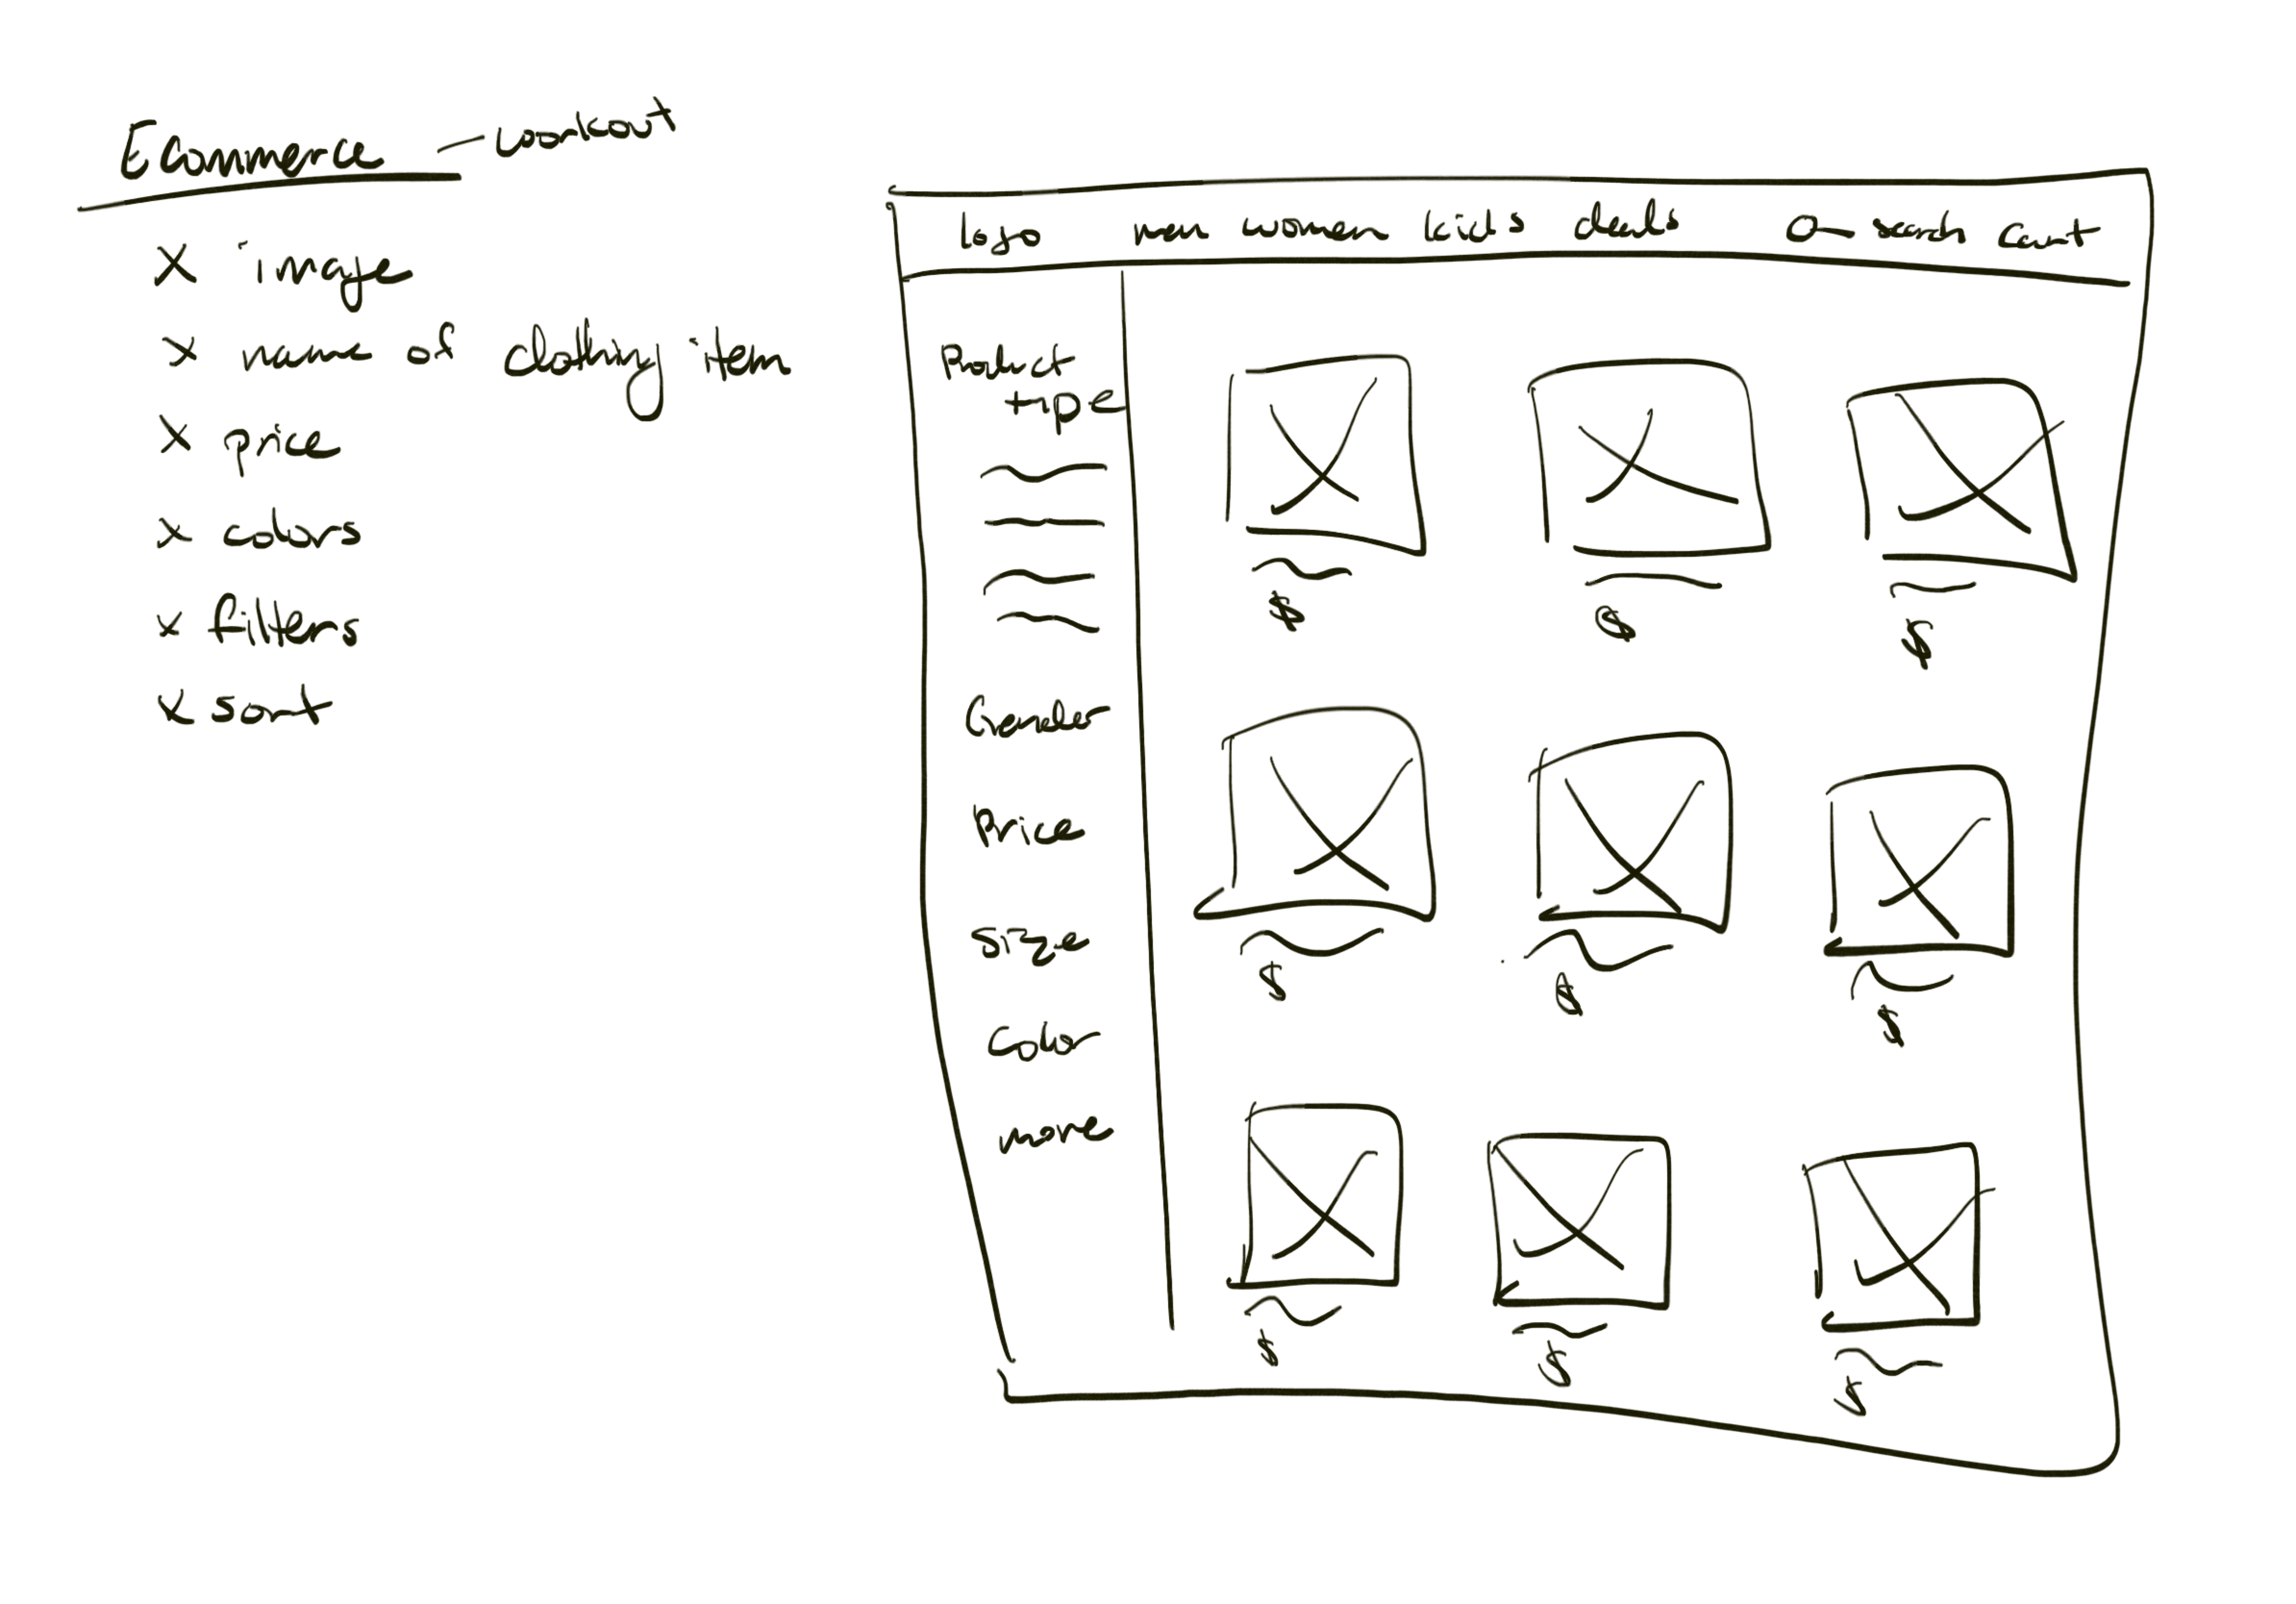 Ecommerce - workout
x image
x name of clothing item
x price
x colors
x filters
x sort
logo men women kids deals search cart
Product
type
Gender
Price
Size
Color
more
$ $ $
$ $ $
$ $ $